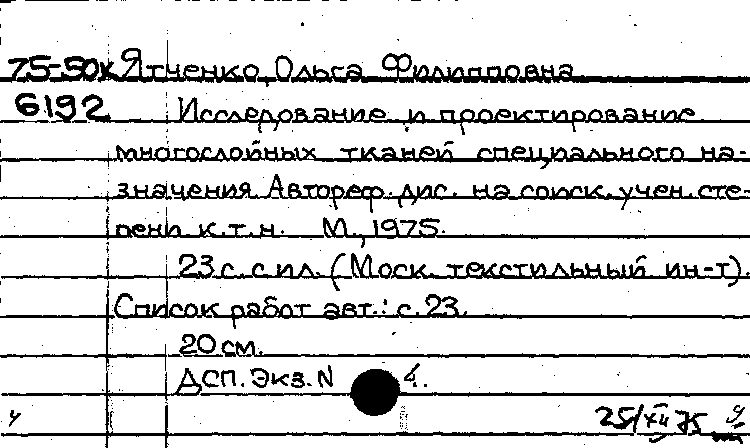 75-50к Ятченко, Ольга Филипповна
6192 Исследование и проектирование
многослойных тканей специального на-
значения Автореф. дис. на соиск. учен. сте-
пени к.т.н. М., 1975.
23 с. с ил. (Моск. текстильный ин-т).
Список работ авт.: с. 23.
20 см.
ДСП. Экз. N 4.
25/XII 75